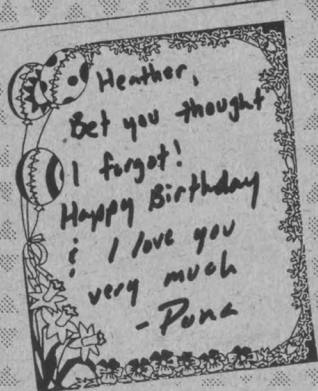 Heather,
Bet you thought
I forgot!
Happy Birthday
& I love you
very much
- Puna